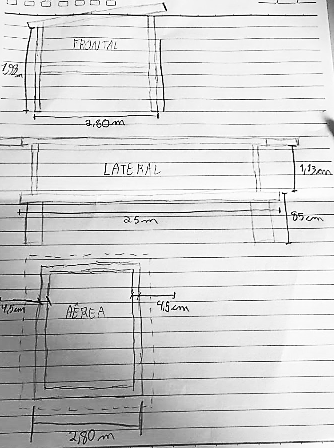 FRONTAL
1,98 m
2,80 m
LATERAL
1,13 cm
25 m
85 cm
4,5 cm
AÉREA
4,5 cm
2,80 m